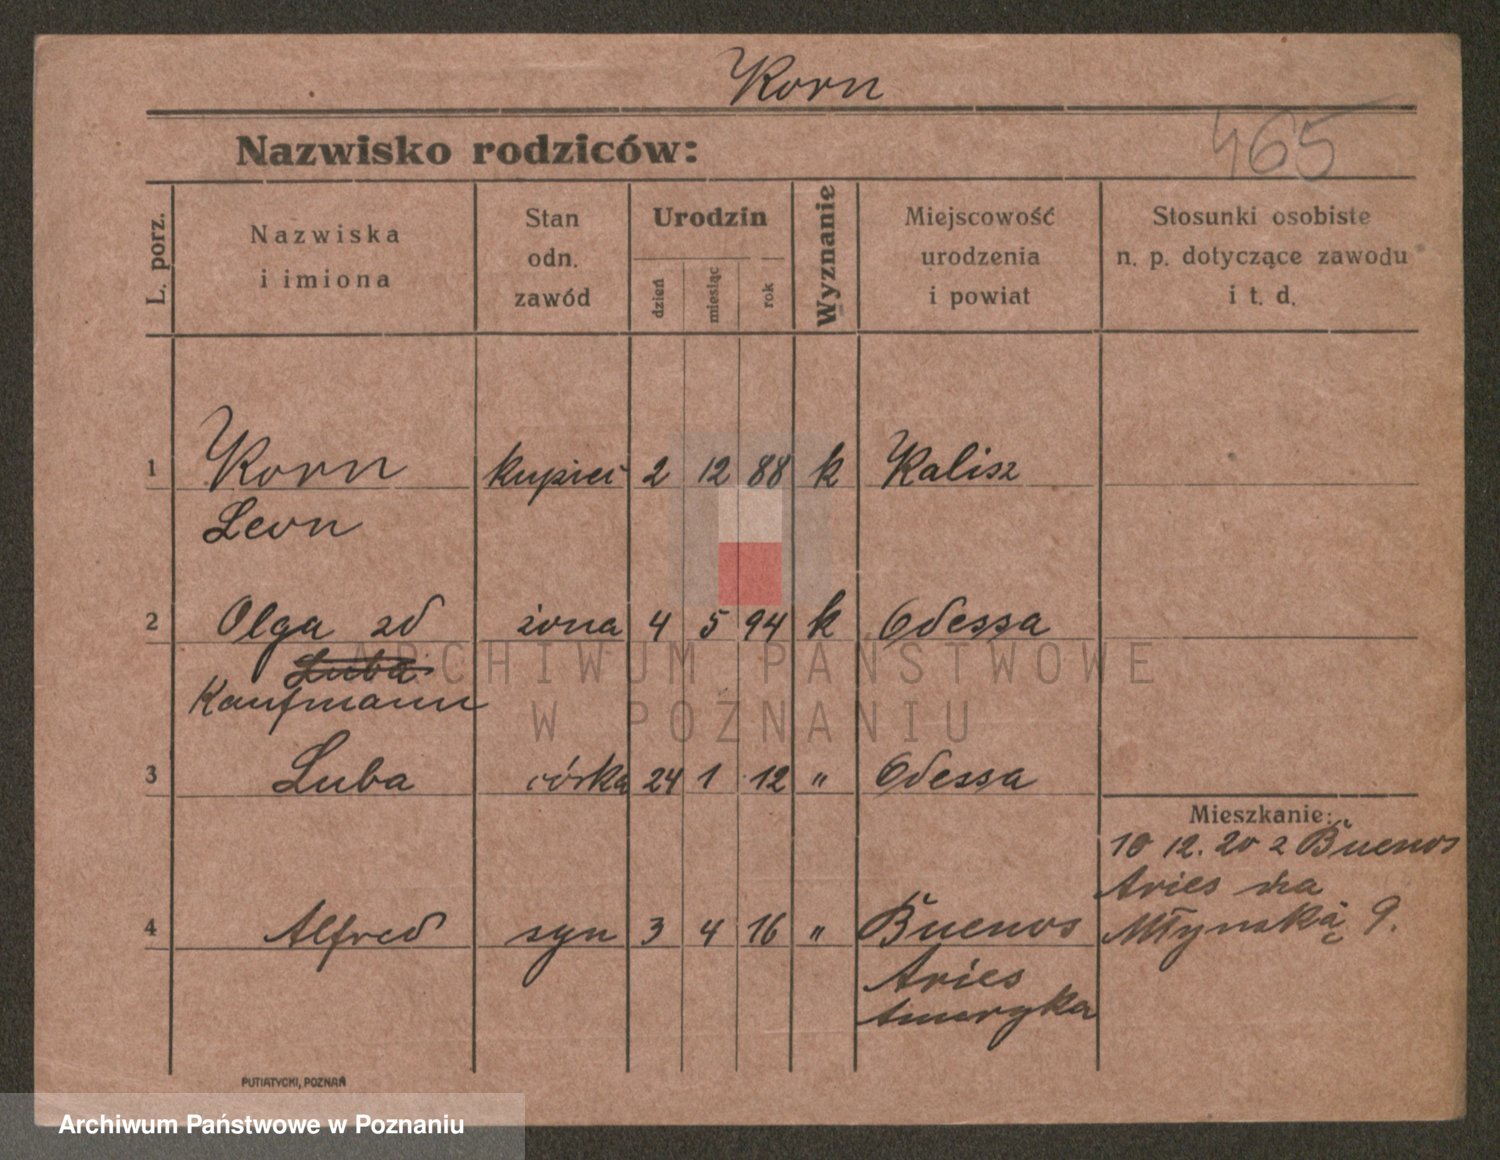 Korn
Nazwisko rodziców:
465
L. porz.
Nazwiska
i imiona
Stan
odn.
zawód
Urodzin
dzień
miesiąc
rok
Wyznanie
Miejscowość
urodzenia
i powiat
Stosunki osobiste
n. p. dotyczące zawodu
i t. d.
1 Korn kupiec 2 12 88 k Kalisz
Leon
2 Olga zd żona 4 5 94 k Odessa
Luba
Kaufmann
3 Luba córka 24 1 12 " Odessa
Mieszkanie:
10 12. 20 z Buenos
Aries na
Młynską 9.
4 Alfred syn 3 4 16 " Buenos
Aries
Ameryka
PUTIATYCKI, POZNAŃ
ARCHIWUM PAŃSTWOWE
W POZNANIU
Archiwum Państwowe w Poznaniu